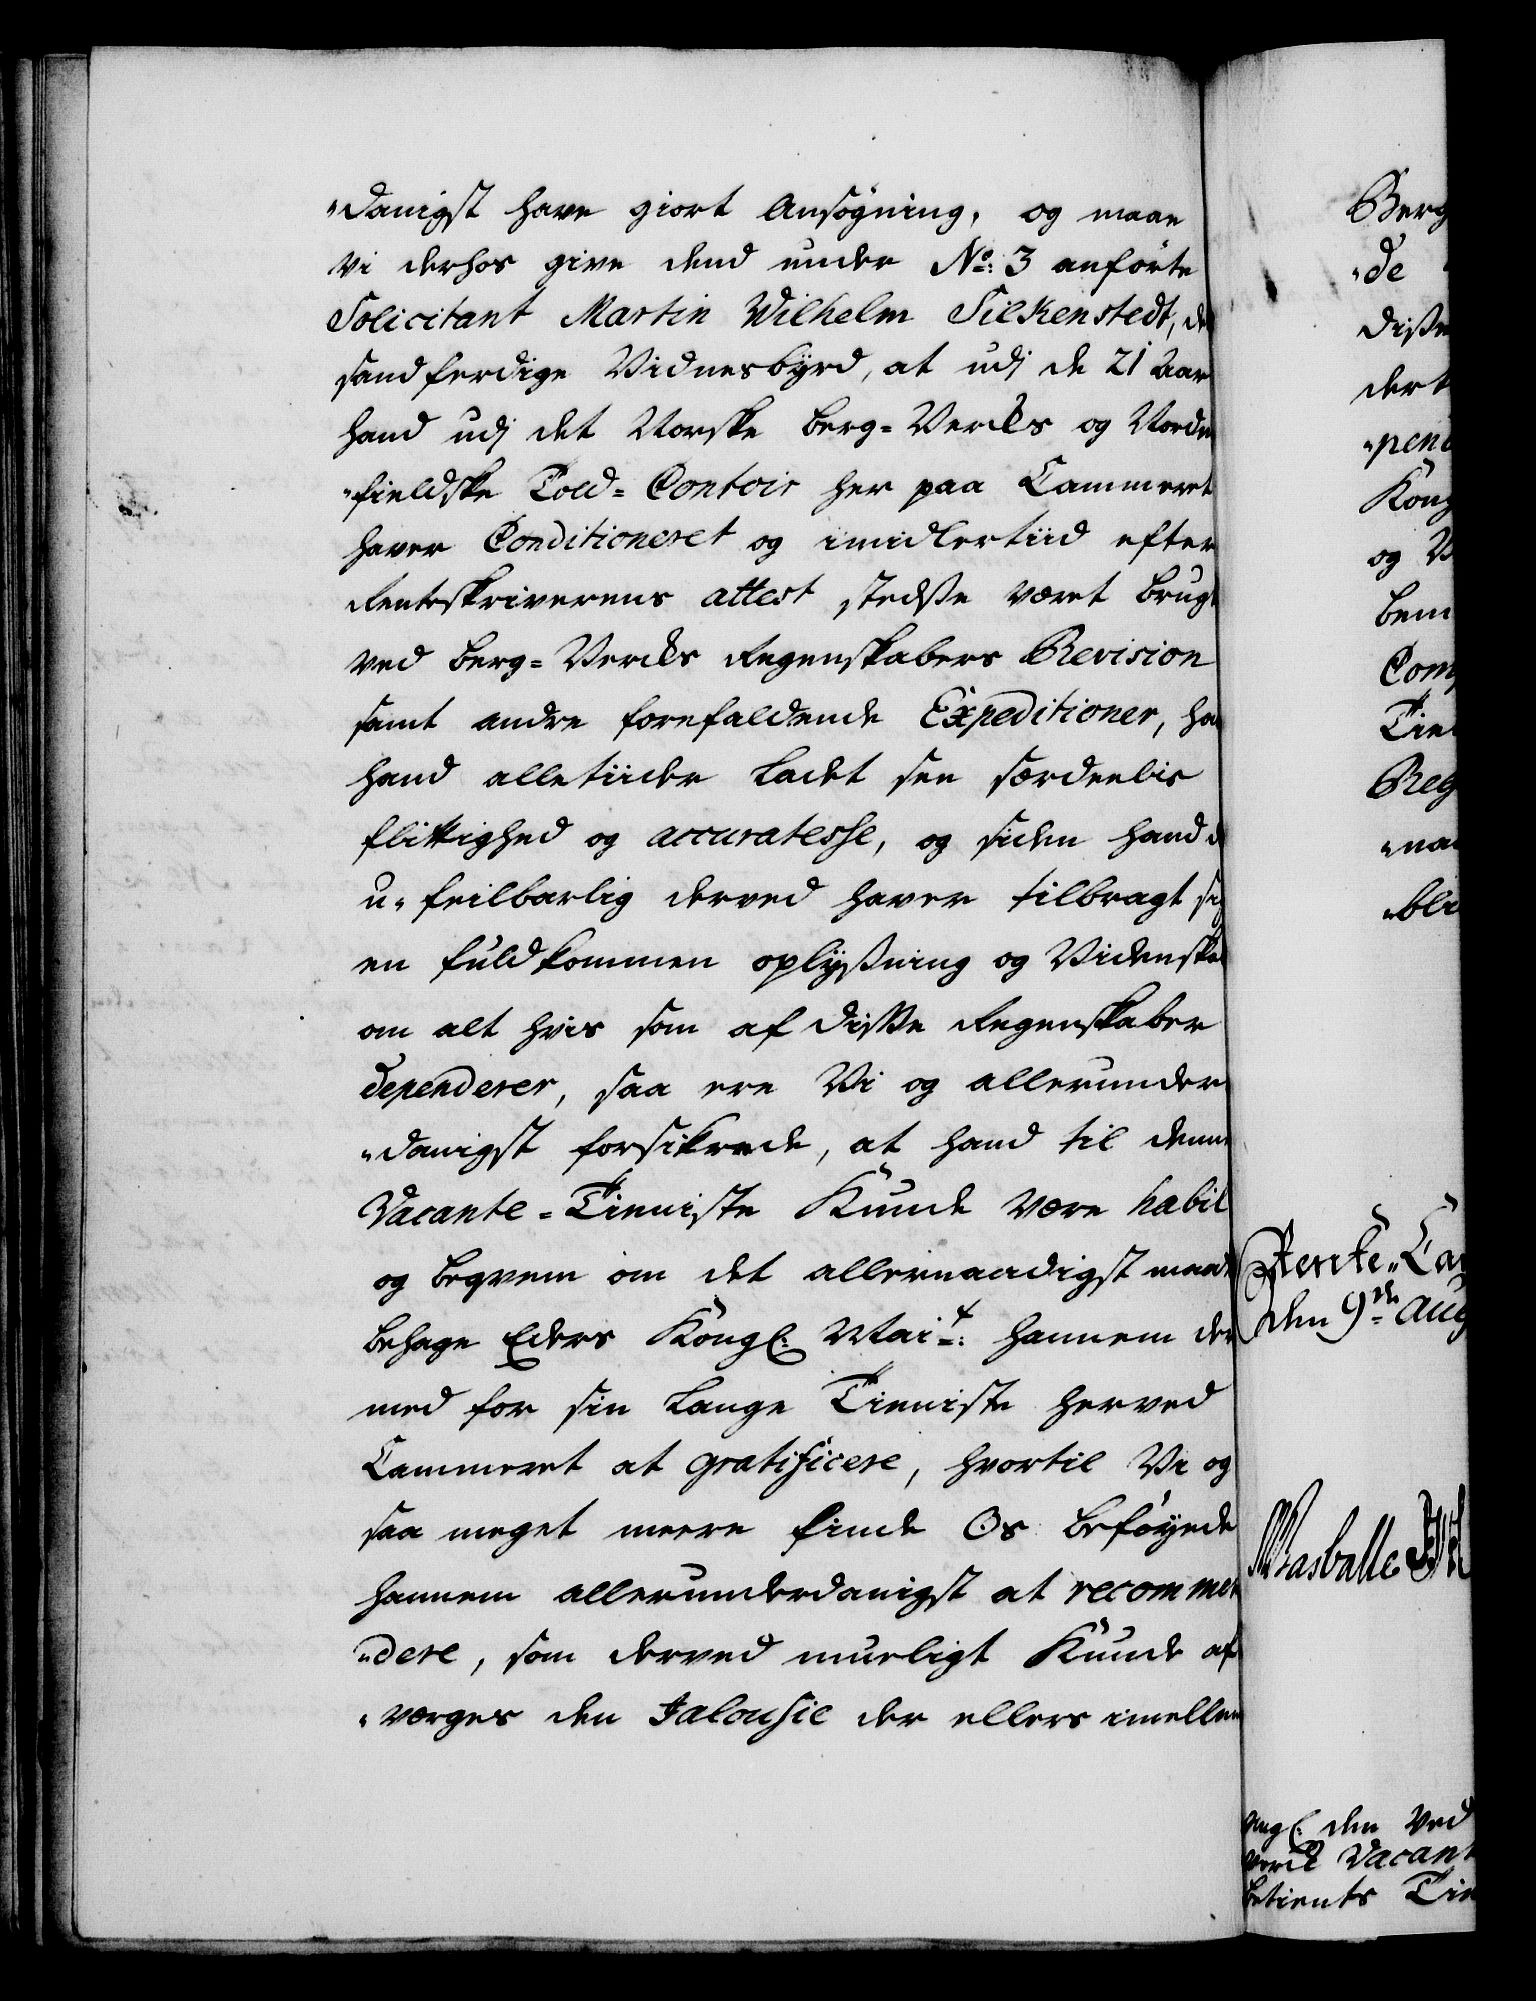 "danigst have giort Ansøgning, og maae
Vi derhos give dend under No: 3 anførte
Solicitant Martin Wilhelm Silkenstedt, de
sandferdige Vidnesbyrd, at udj de 21 Aar
hand udj det Norske Berg=Vercks og Norden
"fieldske Told=Contoir her paa Cammeret
haver Conditioneret og imidlertiid efter
Renteskriverens attest stedsse været brugt
ved Berg=Vercks Regenskabers Revision
samt andre forefaldende Expeditioner, ha
hand alletiider ladet see særdeelis
flittighed og accuratesse, og siden hand d
u"feilbarlig derved haver tilbragt sig
en fuldkommen oplysning og Videnskab
om alt hvis som af disse Regenskaber
dependerer, saa ere Vi og allerunder
"danigst forsikrede, at hand til denne
Vacante=Tienniste Kunde være habil
og beqvem om det allernaadigst maatte
behage Eders Kongl: Mait: hannem der
med for sin lange Tienniste herved
Cammeret at gratificere, hvortil Vi og
saa meget meere finde Os beføyede
hannem allerunderdanigst at recommen
"dere, som derved mueligt Kunde af
"værges den Jalousie der ellers imellem
Berg
"de
disse
dert
"pend
Kong
og V
bem
Com
Tien
Reg
"na
"bli
Rente"Cam
den 9de Aug
Masballe
angl: den ved
verck Vacant
betients Tien